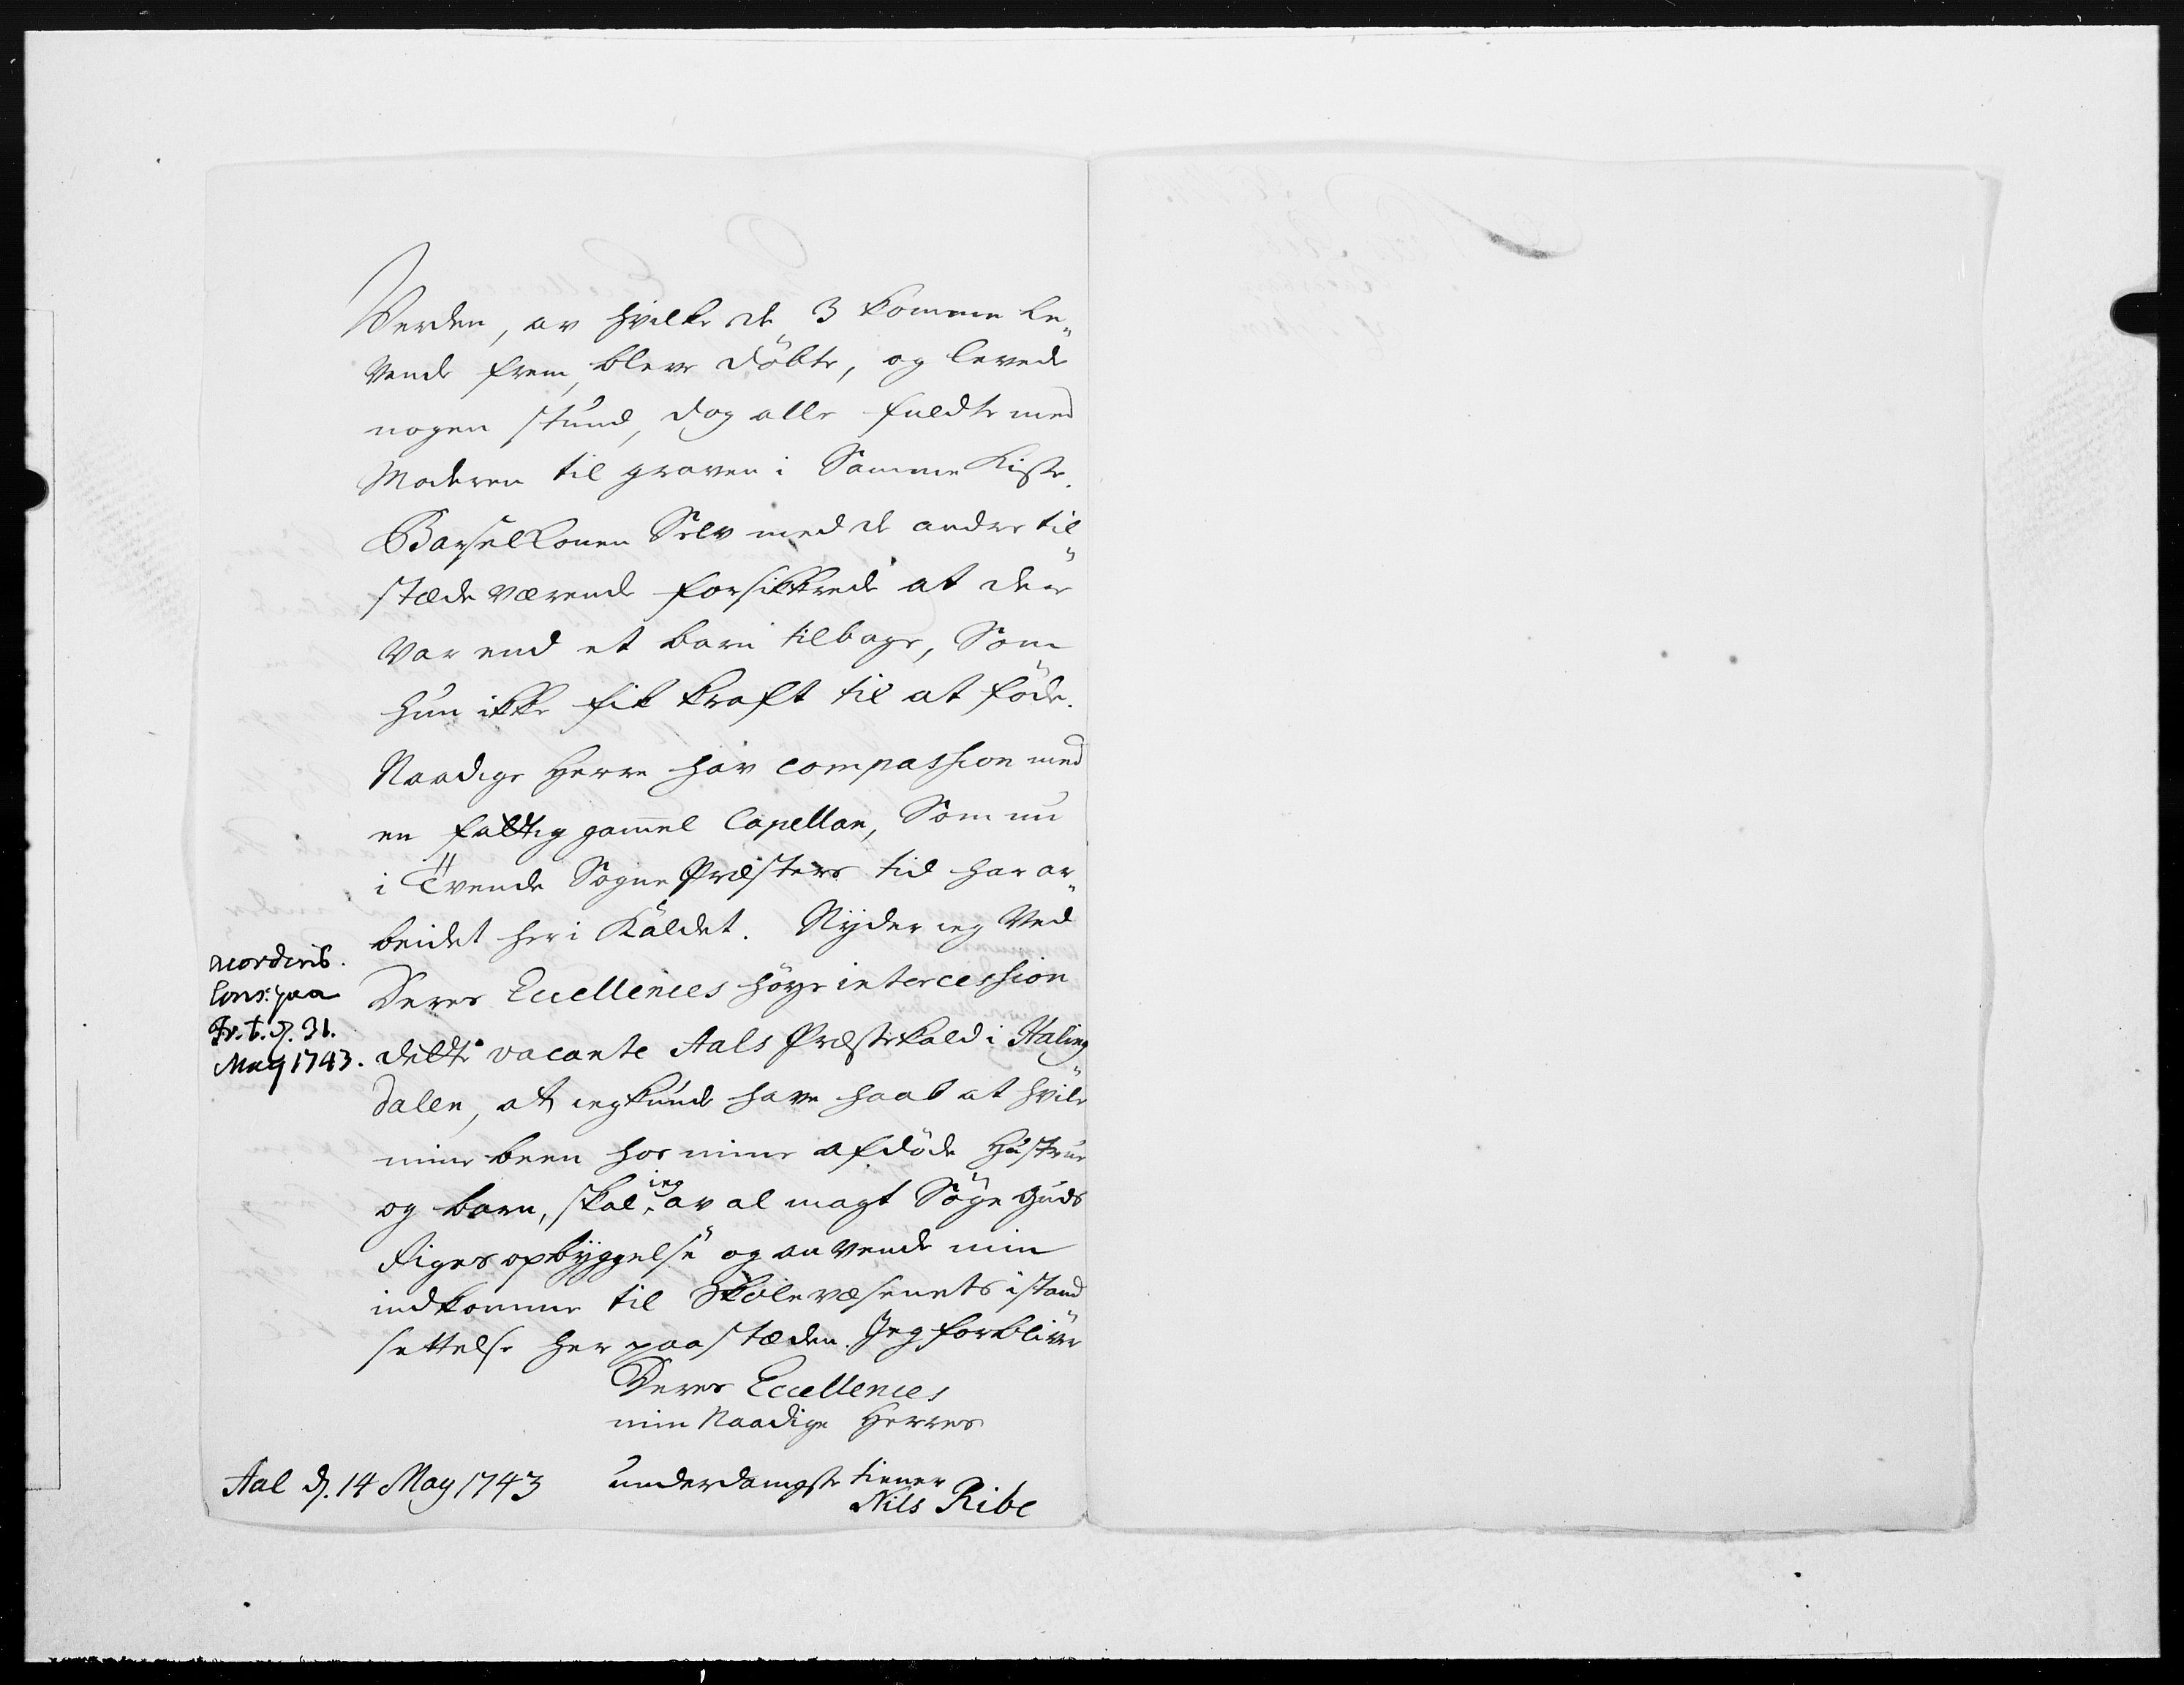 Verden, av hvilke de 3 komme le„
vende frem, bleve döbte, og levede
nogen stund, dog alle fuldte med
Moderen til graven i Samme Kiste.
Barselkonen Selv med de andre til„
stæde værende forsikkrede at der
var end et barn tilbage, Som
hun ikke fik kraft til at föde.
Naadige Herre hav compassion med
en fattig gam̄el Capellan, Som nu
i Tvende Sogne Præsters tid har ar„
beidet her i Kaldet. Nyder ieg Ved
Deres Excellences höye intercession
dette vacante Aals Præstekald i Haling„
dalen, at ieg kunde have haab at hvile
mine been hos mine afdöde Hustrue
og barn, skal ieg av al magt Söge Guds
Riges opbyggelse og anvende min
indkomme til Skolevæsenets istand„
settelse her paa stæden. Jeg forbliver
Deres Excellences
min Naadige Herres
underdanigste tiener
Nils Ribe
Aal d. 14 May 1743
paa
d. 31.
May 1743.